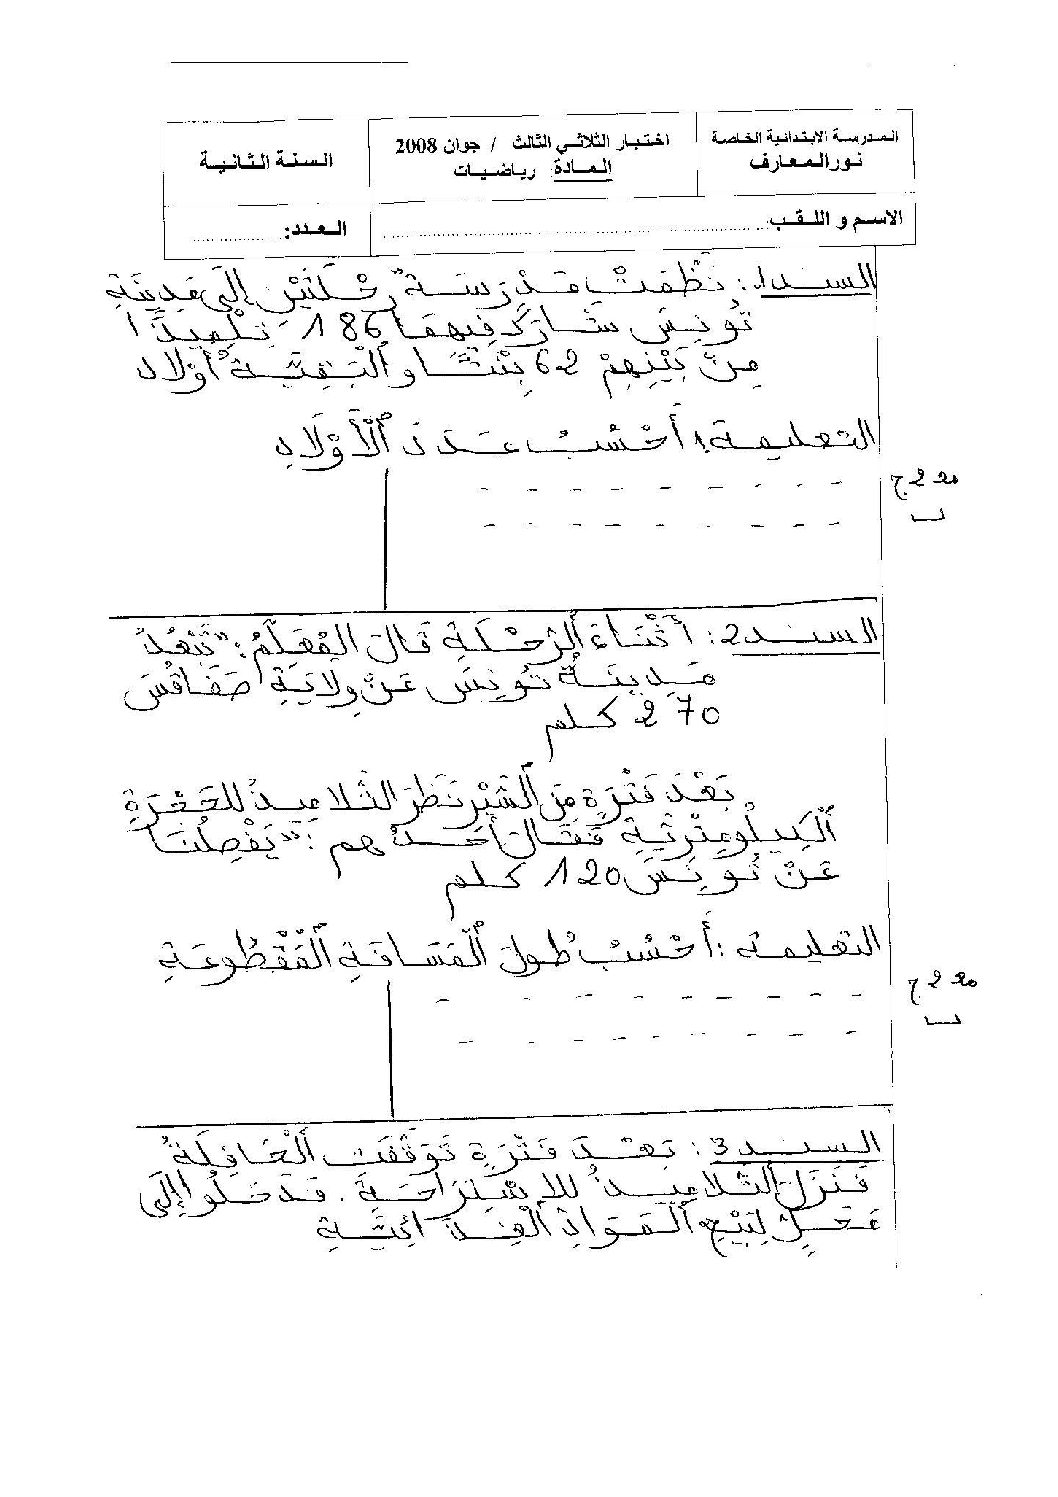 المدرسة الابتدائية الخاصة
نور المعارف
اختبار الثلاثي الثالث / جوان 2008
المادة رياضيات
السنة الثانية
الاسم و اللقب
العدد:
السند1: نَظَّمَتْ مَدْرَسَةٌ رِحْلَتَيْنِ إِلَى مَدِينَةِ
تُونِسَ شَارَكَ فِيهِمَا 186 تِلْمِيذًا
مِنْ بَيْنِهِمْ 62 بِنْتًا وَالْبَقِيَّةُ أَوْلاد
التعليمة: أَحْسُبُ عَدَدَ الْأَوْلَادِ
مع 2 ج
ب
السند2: أَثْنَاءَ الرِّحْلَةِ قَالَ الْمُعَلِّمُ: "تَبْعُدُ
مَدِينَةُ تُونِسَ عَنْ وِلَايَةِ صَفَاقُسَ
270 كلم
بَعْدَ فَتْرَةٍ مِنَ السَّيْرِ نَظَرَ التّلاميذُ لِلحَجَرَةِ
الْكِيلُومِتْرِيَّةِ فَقَالَ أَحَدُهم: "يَفْصِلُنَا
عَنْ تُونِسَ 120 كلم
التعليمة: أَحْسُبُ طُولَ الْمَسَافَةِ الْمَقْطُوعَةِ
مع 2 ج
ب
السند3: بَعْدَ فَتْرَةٍ تَوَقَّفَتِ الْحَافِلَةُ
فَنَزَلَ التّلاميذُ للاِسْتِرَاحَةِ. فَدَخَلُوا إِلَى
مَحَلٍّ لِبَيْعِ الْمَوَادِّ الْغِذَائِيَّةِ